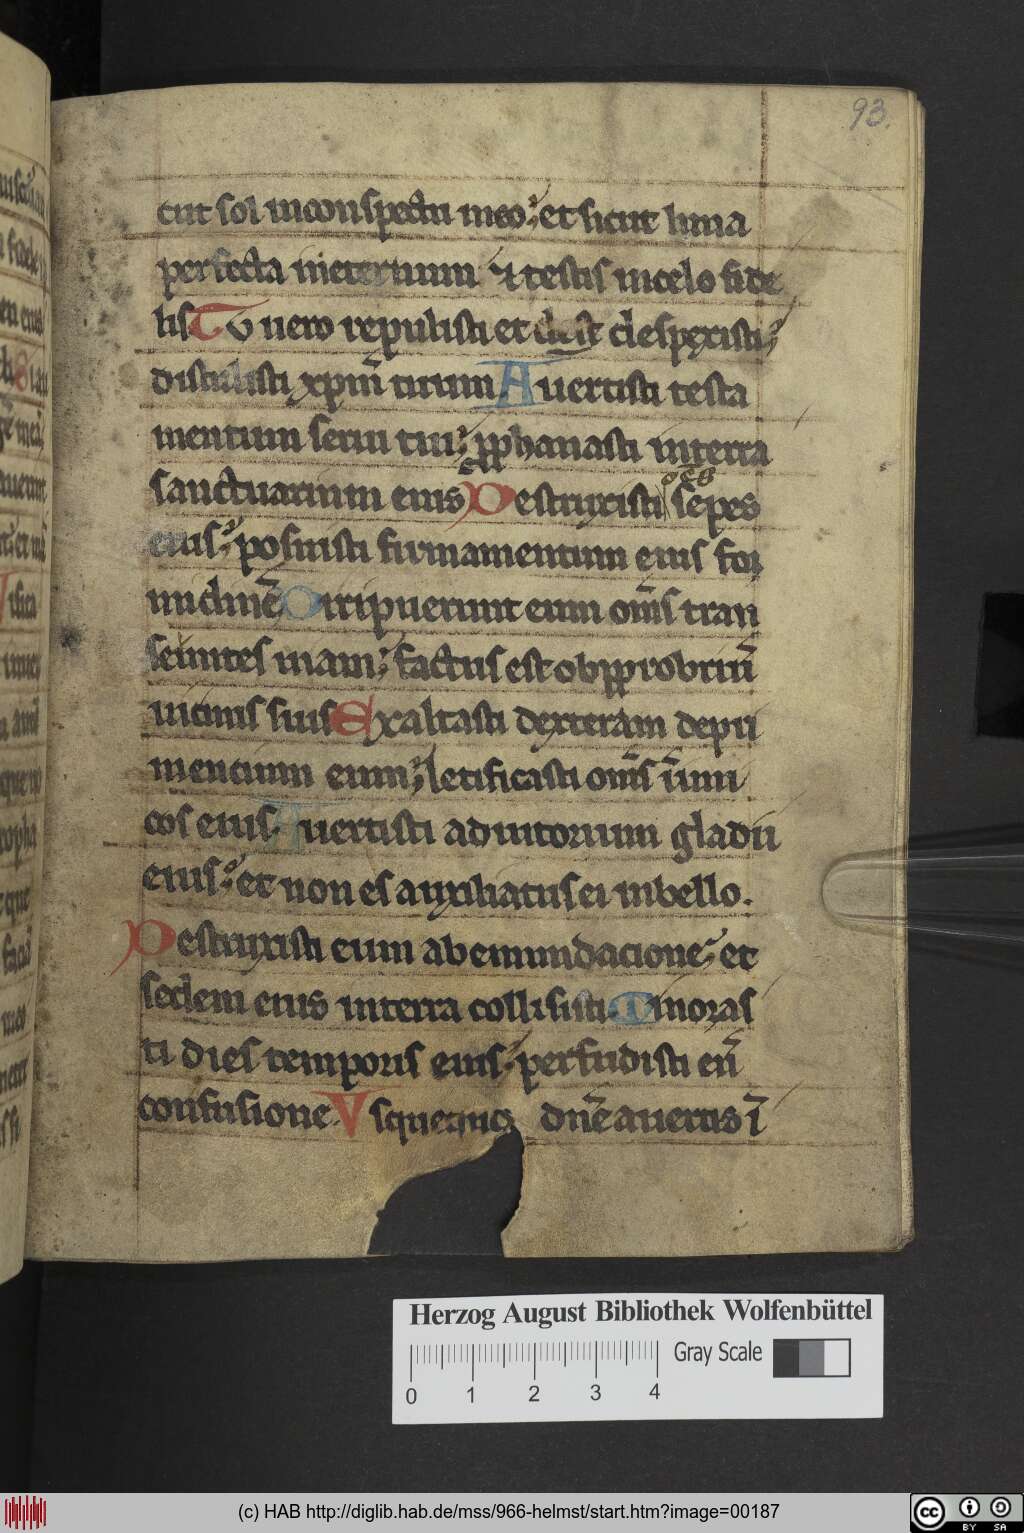 93.
cut sol inconspectu meo; et sicut luna
perfecta ineternum ⁊ testis incelo fide
lis Tu uero repulisti et despexisti;
distulisti xpm̄ tuum Auertisti testa
mentum serui tui; pphanasti interra
sanctuarium eius Destruxisti oc̄s sepes
eius; posuisti firmamentum eius for
midinē Diripuerunt eum om̄s tran
seuntes uiam; factus est obpprobriū
uicinis suis Exaltasti dexteram depri
mentium eum; letificasti om̄s inimi
cos eius. Auertisti adiutorium gladii
eius; et non es auxiliatus ei inbello.
Destruxisti eum abemundacione; et
sedem eius interra collisisti. Minoras
ti dies temporis eius; perfudisti eū
confusione. Vsquequo dn̄e auertis ī
Herzog August Bibliothek Wolfenbüttel
Gray Scale
0 1 2 3 4
(c) HAB http://diglib.hab.de/mss/966-helmst/start.htm?image=00187
cc BY SA